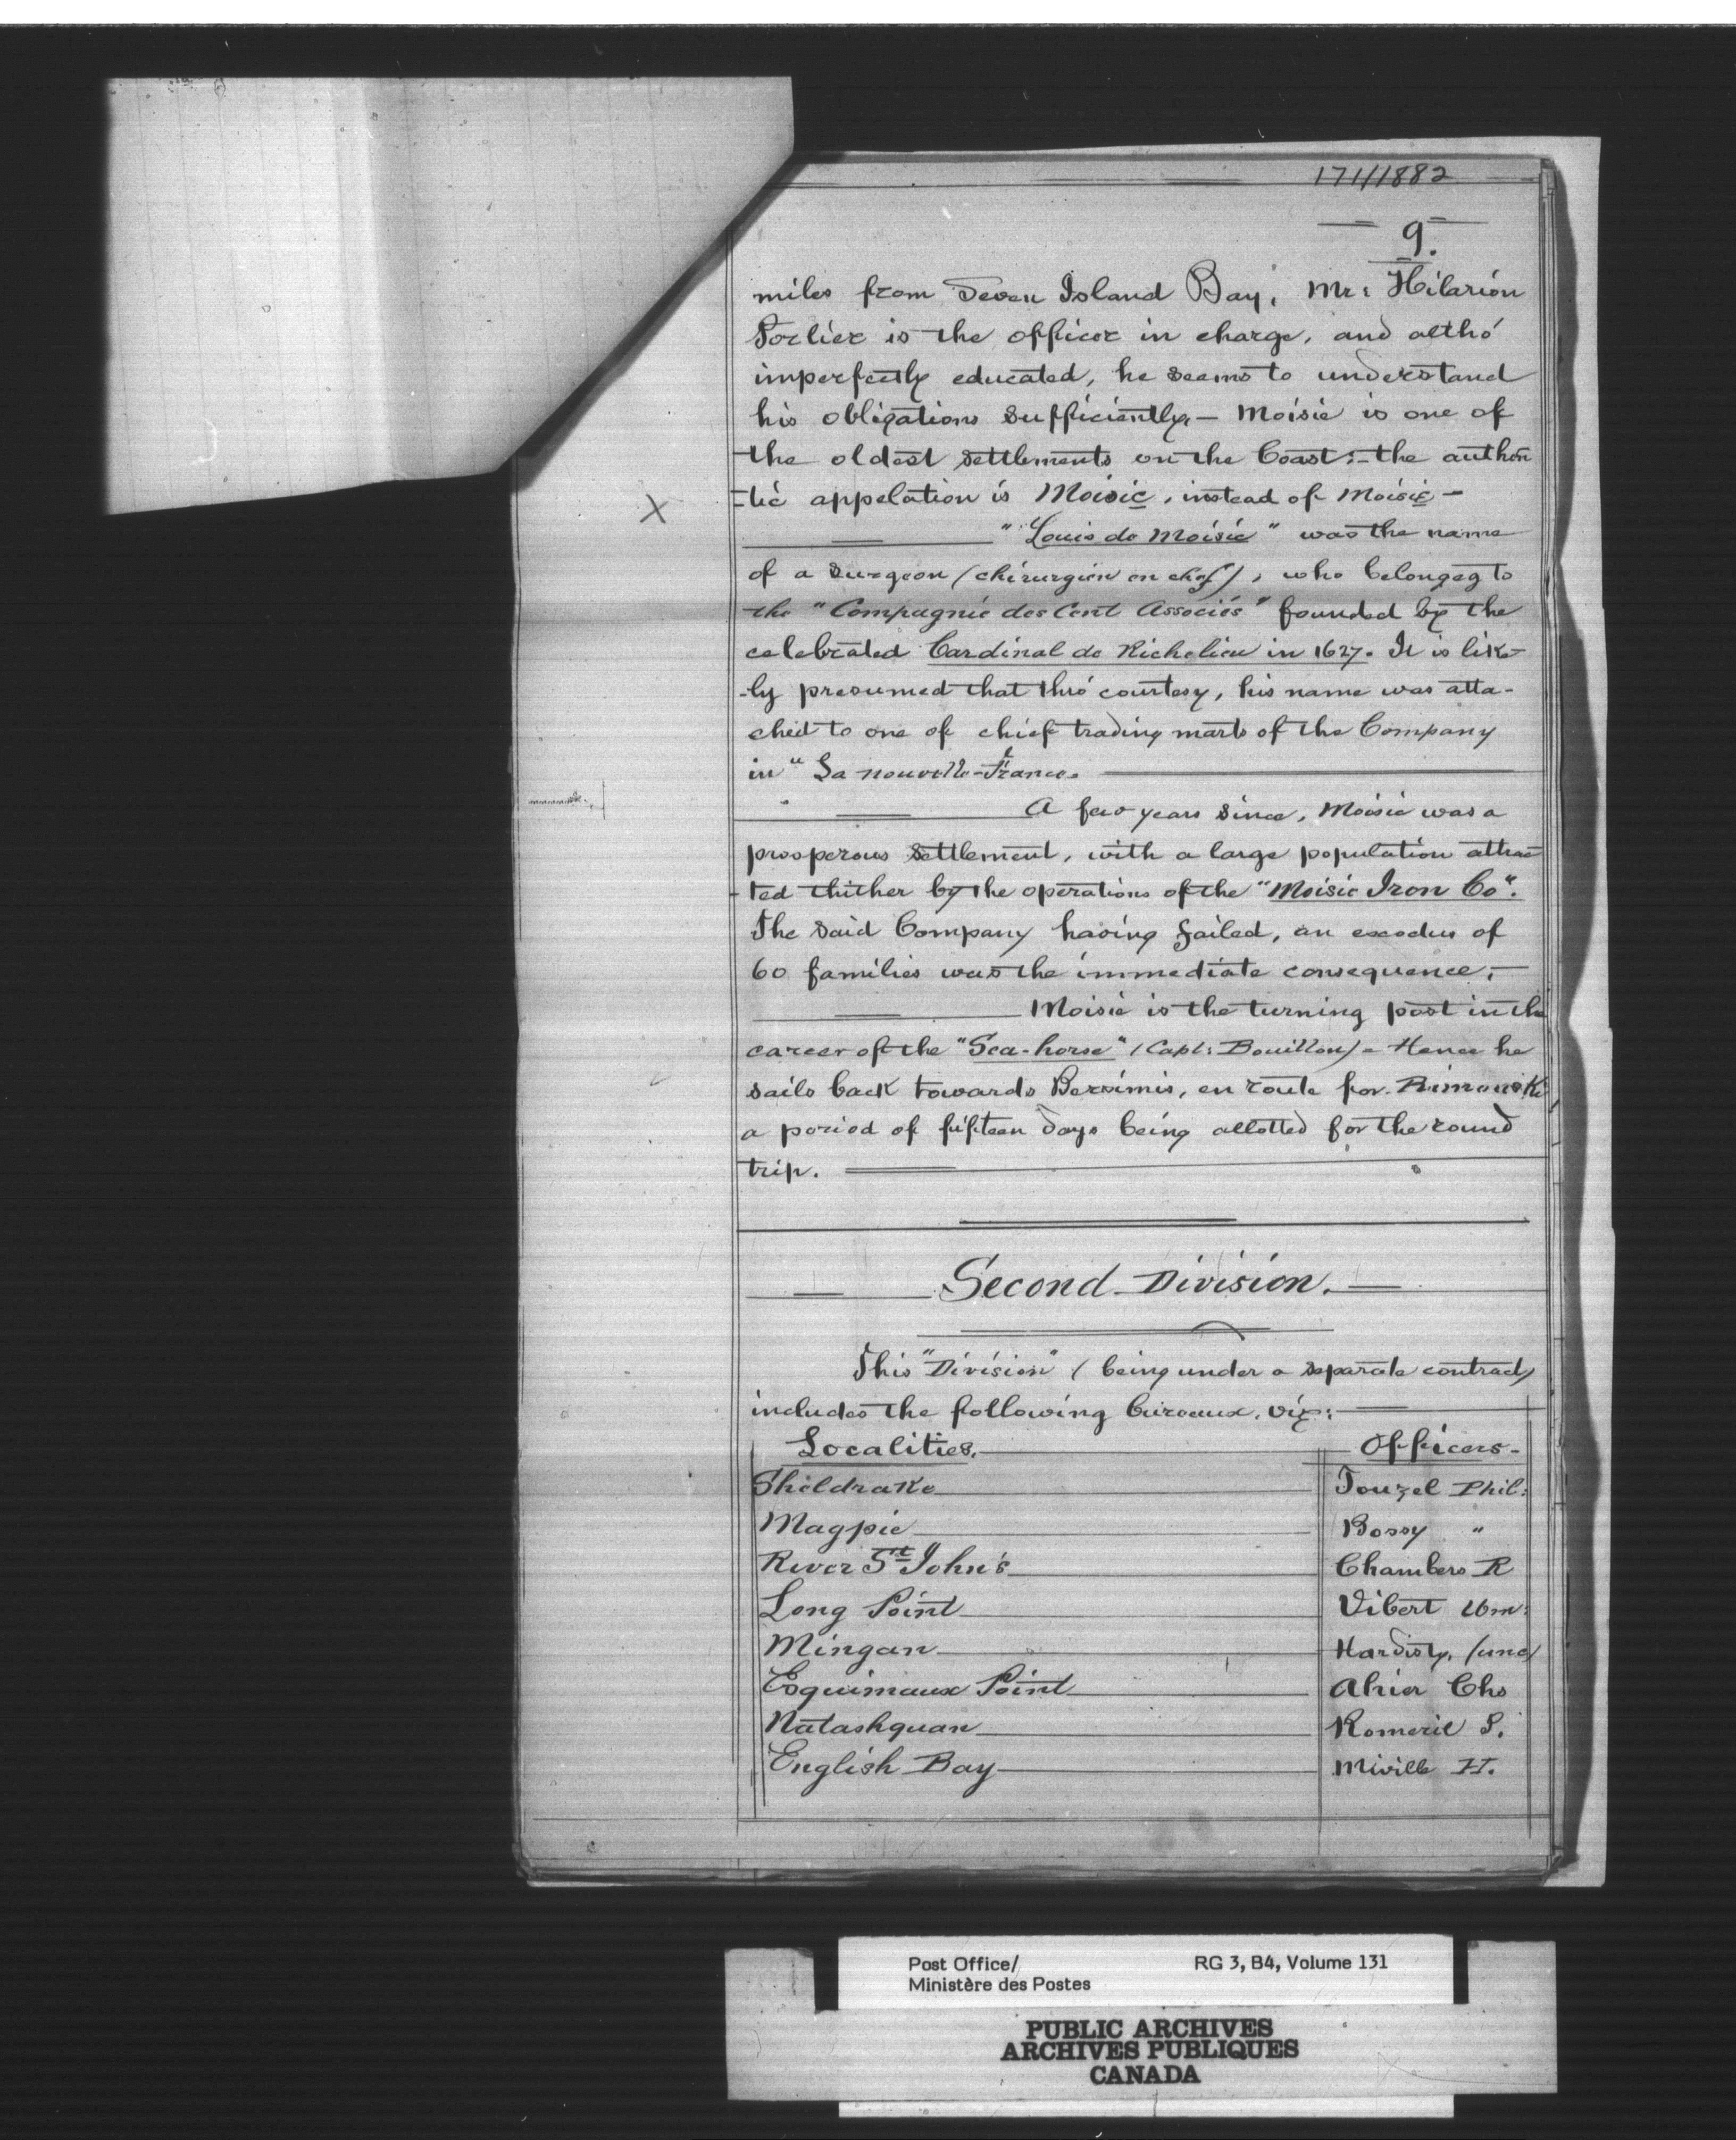 171/1882
9.
miles from Seven Island Bay, Mr: Hilarion
Porlier is the officer in charge, and altho'
imperfectly educated, he seems to understand
his obligations sufficiently,- Moisie is one of
the oldest settlements on the Coast:- the authen
-tic appelation is Moisic, instead of Moisie -
"Louis de Moisic" was the name
of a surgeon (chirurgien en chef), who belonged to
the "Compagnie des Cent Associés" founded by the
celebrated Cardinal de Richelieu in 1627. It is like-
-ly presumed that thro' courtesy, his name was atta-
ched to one of chief trading marts of the Company
in "La nouvelle-France.
A few years since, Moisie was a
prosperous settlement, with a large population attrac
-ted thither by the operations of the "Moisic Iron Co".
The said Company having failed, an exodus of
60 families was the immediate consequence,-
Moisie is the turning post in the
career of the "Sea-horse" (Capt: Bouillon) - Hence he
sails back towards Bersimis, en route for Rimouski
a period of fifteen days being allotted for the round
trip.
Second Division.
This "Division" (being under a separate contract)
includes the following bureaux, viz:
Localities. Officers-
Sheldrake Touzel Phil:
Magpie Bossy "
River St John's Chambers R
Long Point Vibert Wm:
Mingan Hardisty,
Esquimaux Point Ahier Chs
Natashquan Romeril P.
English Bay Miville H.
Post Office/ RG 3, B4, Volume 131
Ministère des Postes
PUBLIC ARCHIVES
ARCHIVES PUBLIQUES
CANADA